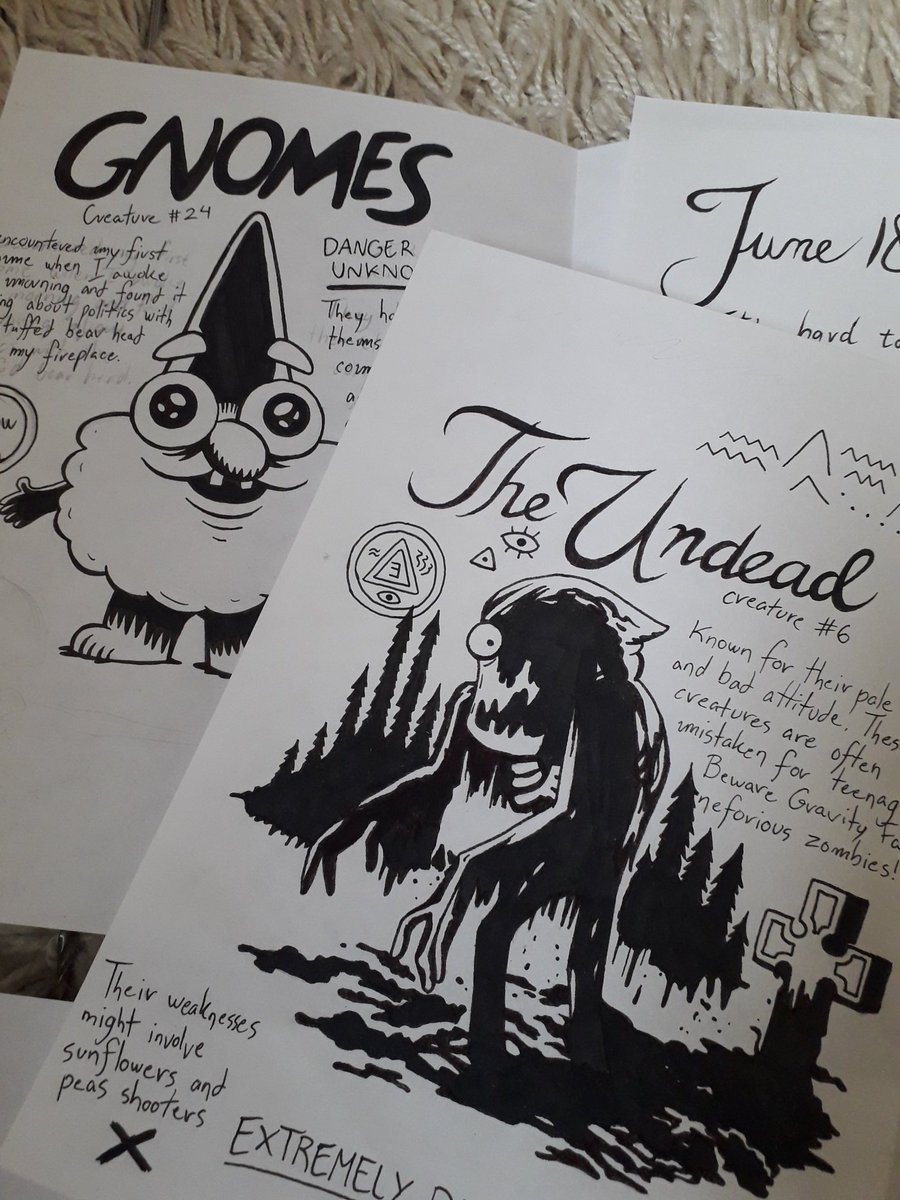 GNOMES
Creature #24
encountered my first
when I awoke
morning and found it
about politics with
stuffed bear head
my fireplace.
W
DANGER
UNKNO
They ha
thems
com
a
June 18
hard to
The Undead
creature #6
Known for their pale
and bad attitude. Thes
creatures are often
mistaken for teenag
Beware Gravity Fa
neforious zombies!
Their weaknesses
might involve
sunflowers and
peas shooters
X
EXTREMELY D